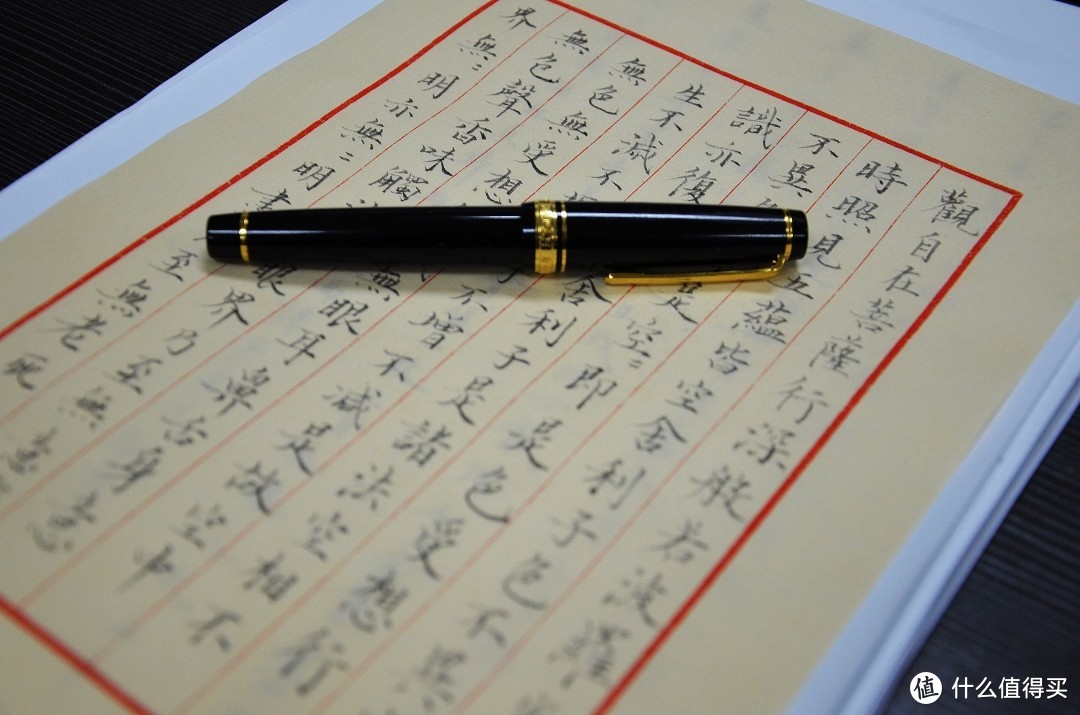 觀自在菩薩行深般若波羅
時照見五蘊皆空舍利子色不異
不異是空〻即是色受想行
識亦復舍利子是諸法空相不
生不滅不不增不減是故空中
無色無受想無眼耳鼻舌身意
無色聲香味觸眼界乃至無意
界無〻明亦無〻明盡至無老死
值 什么值得买